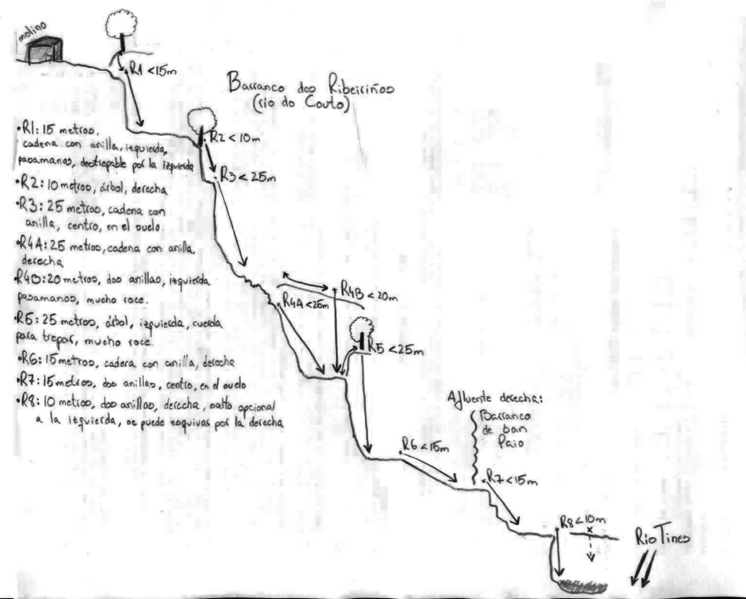 molino
R1<15m
Barranco dos Ribeiriños
(rio do Couto)
R2<10m
R3<25m
•R1: 15 metros,
cadena con anilla, izquierda,
pasamanos, destrepable por la izquierda
•R2: 10 metros, árbol, derecha
•R3: 25 metros, cadena con
anilla, centro, en el suelo.
•R4A: 25 metros, cadena con anilla,
derecha
•R4B: 20 metros, dos anillas, izquierda
pasamanos, mucho roce.
•R5: 25 metros, árbol, izquierda, cuerda
para trepar, mucho roce.
•R6: 15 metros, cadena con anilla, derecha
•R7: 15 metros, dos anillas, centro, en el suelo
•R8: 10 metros, dos anillas, derecha, salto opcional
a la izquierda, se puede esquivar por la derecha
R4A<25m
R4B<20m
R5<25m
Afluente derecha:
Barranco
de San
Paio
R6<15m
R7<15m
R8<10m
Rio Tines